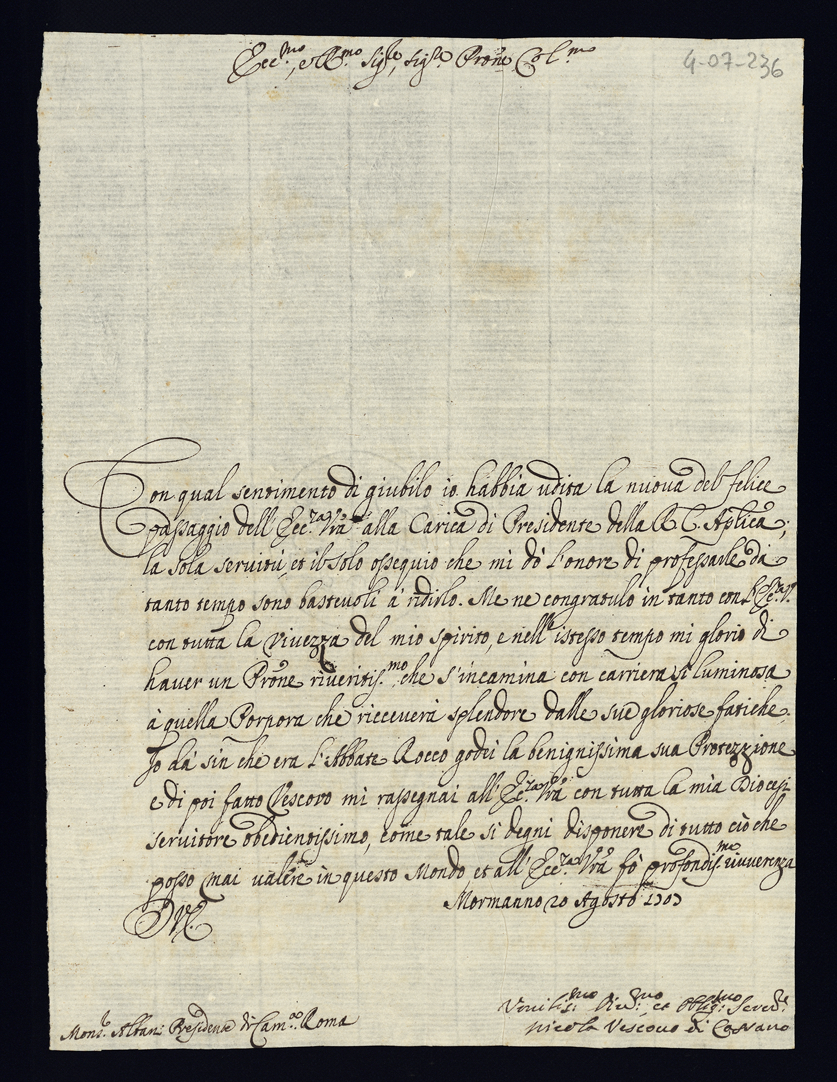 Ecc.mo, e R.mo Sig.re, Sig.re Prõne Col.mo
4-07-236
Con qual sentimento di giubilo io habbia udita la nuova del felice
passaggio dell'Ecc.za Vrã alla Carica di Presidente della R. C. Aplica,
la sola servitù, et il solo ossequio che mi dò l'onore di professarle da
tanto tempo sono bastevoli à ridirlo. Me ne congratulo in tanto con l'Ecc.za V.
con tutta la vivezza del mio spirito, e nell'istesso tempo mi glorio di
haver un Prõne riveritis.mo, che s'incamina con carriera sì luminosa
à quella Porpora che riceverà splendore dalle sue gloriose fatiche.
Io dà sin che era l'Abbate Rocco godei la benignissima sua Protezzione
e di poi fatto Vescovo mi rassegnai all'Ecc.za Vrã con tutta la mia Diocesi
servitore obedientissimo, come tale si degni disponere di tutto ciò che
posso mai valere in questo Mondo et all'Ecc.za Vrã fò profondis.mo riverenza
Mormanno 20 Agosto 1703
D. V. E.
Mons.r Albani Presidente di Cam.ra Roma
Umilis.mo Div.mo et Oblig.mo Serv.re
Nicola Vescovo di Cassano